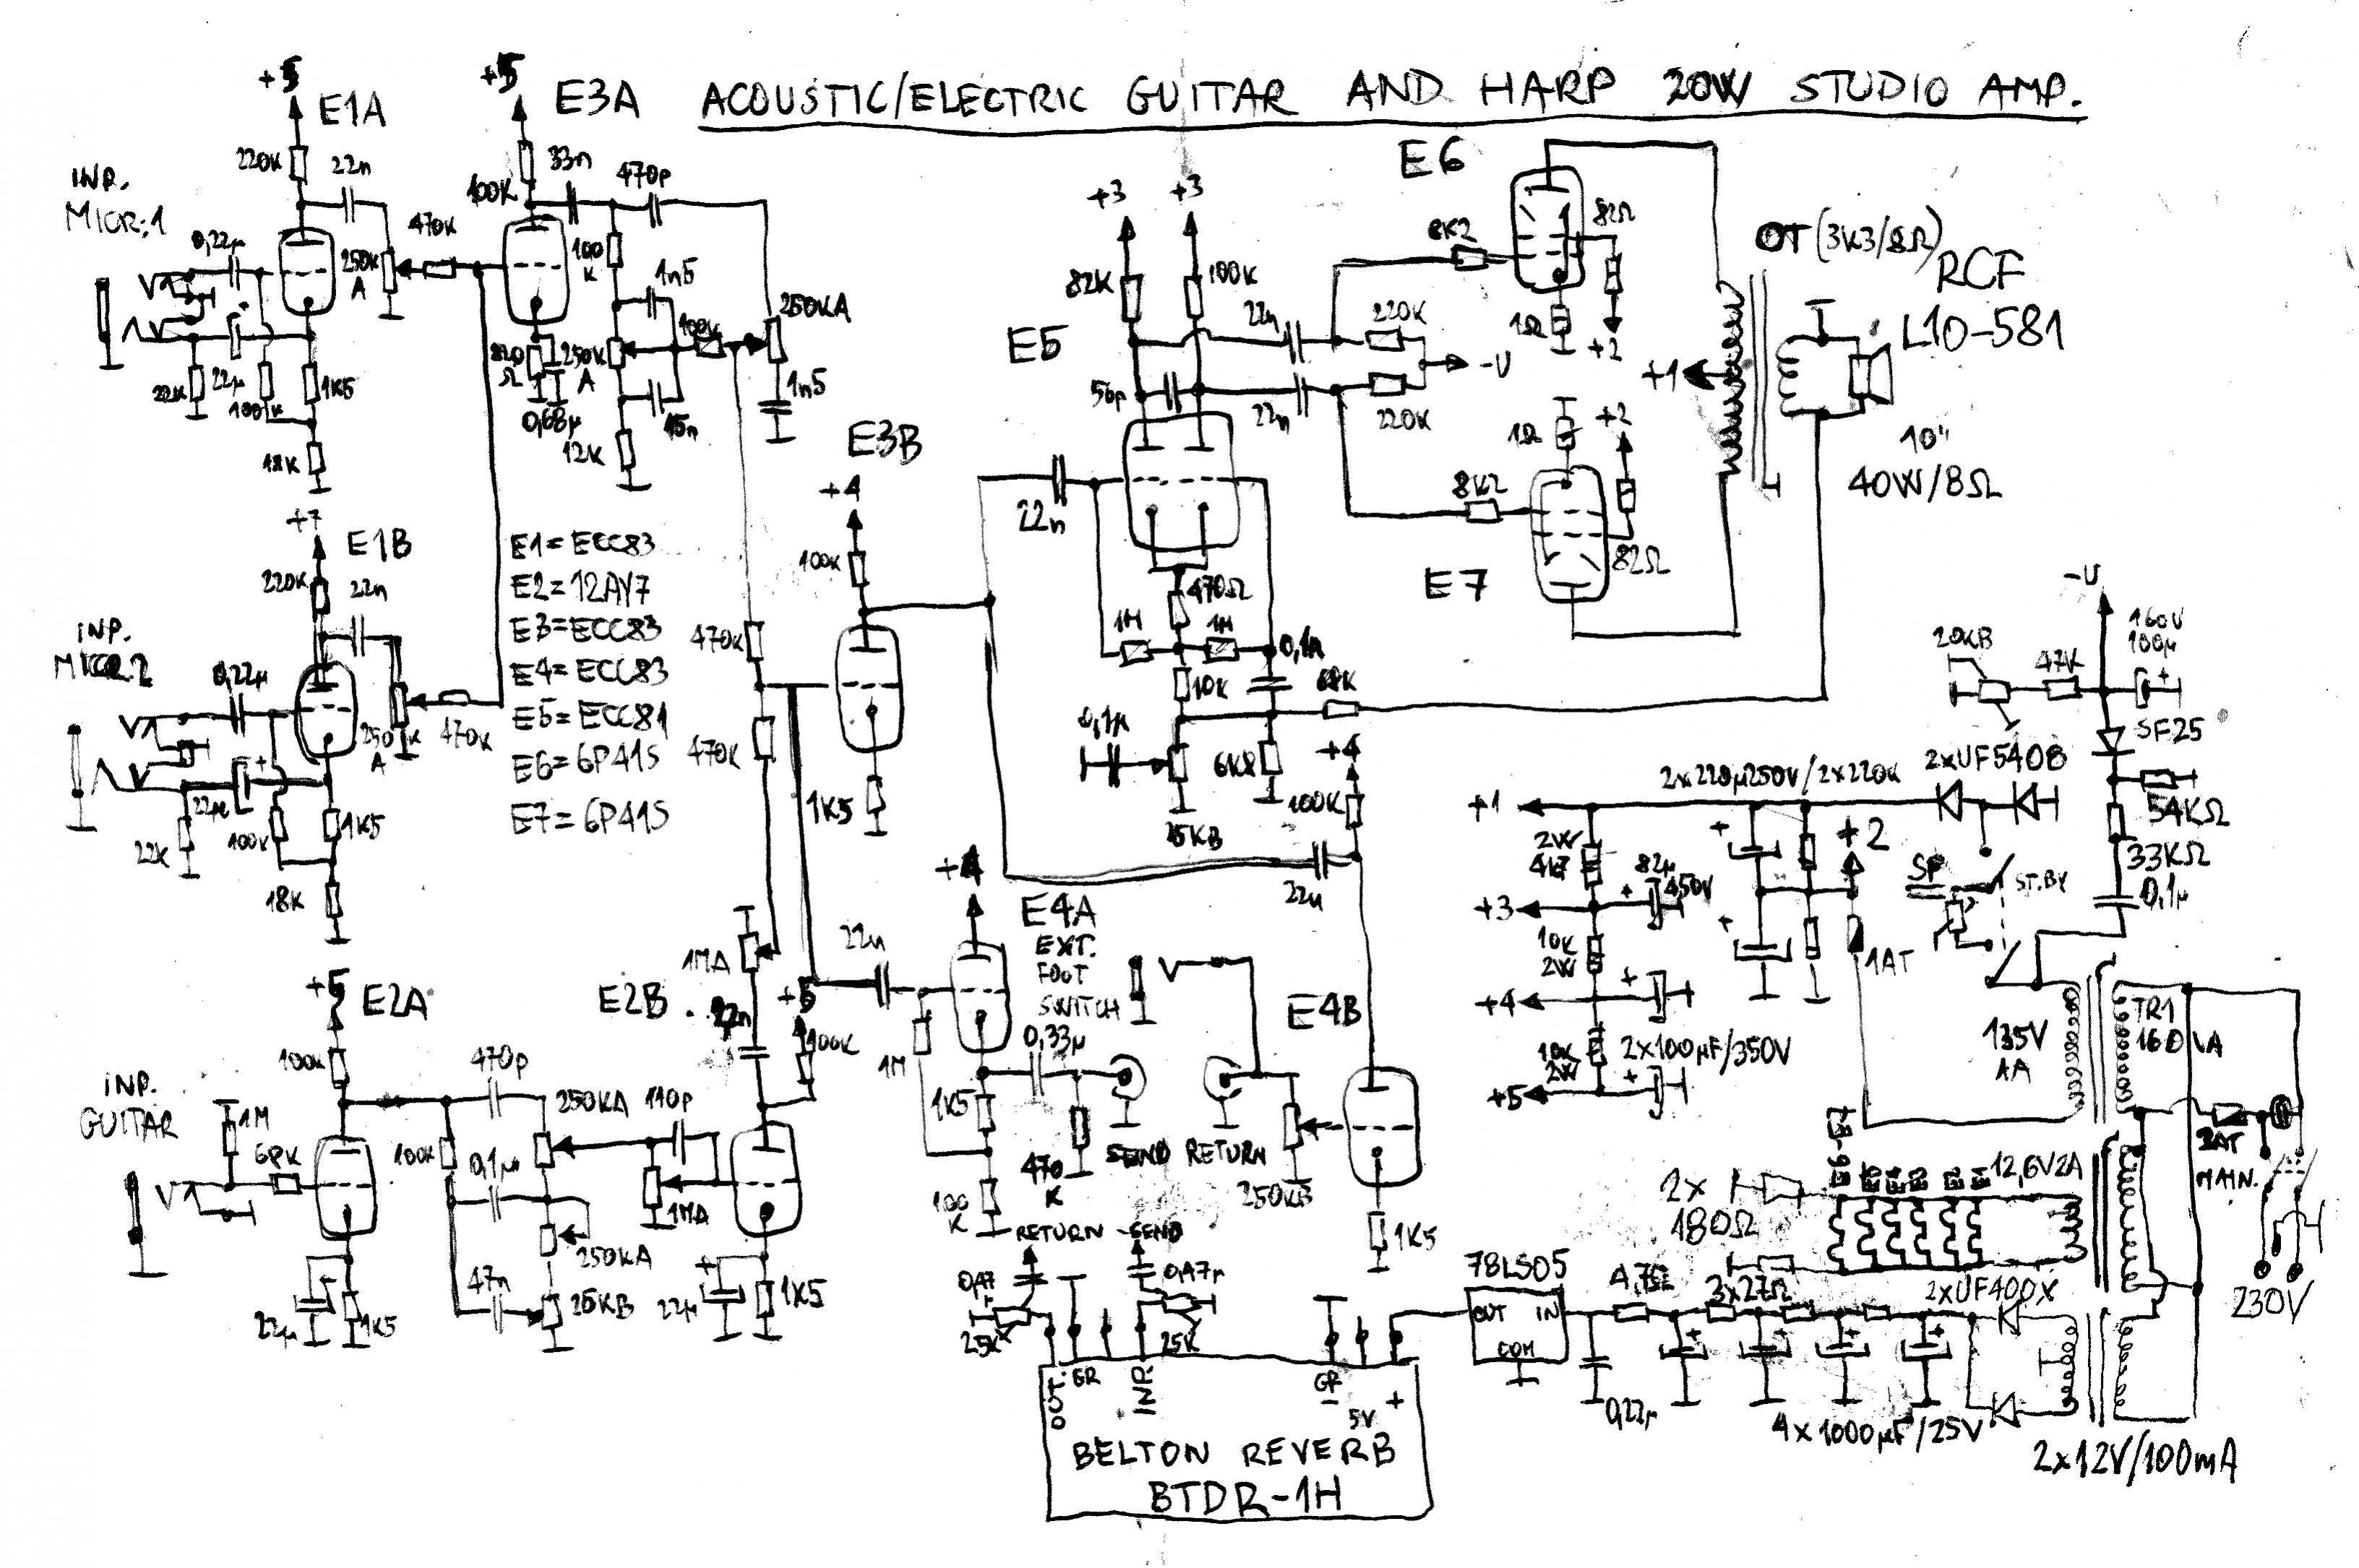 ACOUSTIC/ELECTRIC GUITAR AND HARP 20W STUDIO AMP.
+5
E1A
220K
22n
INP.
MICR:1
0,22µ
250K
A
470K
22K
22µ
100K
1K5
18K
+5
E3A
100K
33n
470p
100
K
1n5
820
Ω
250K
A
100K
250KA
0,68µ
15n
1n5
12K
+7
E1B
220K
22n
INP.
MICR.2
0,22µ
250K
A
470K
22µ
22K
100K
1K5
18K
E1=ECC83
E2=12AY7
E3=ECC83
E4=ECC83
E5=ECC81
E6=6P41S
E7=6P41S
E3B
+4
100K
470K
470K
1K5
+3
+3
82K
100K
E5
56p
22n
22n
22n
220K
220K
-U
470Ω
1M
1M
0,1µ
10K
68K
0,1µ
6K8
25KB
E6
8K2
82Ω
1Ω
+2
1Ω
+2
8K2
82Ω
E7
OT(3K3/8Ω)
RCF
L10-581
+1
10"
40W/8Ω
+5
E2A
100K
470p
INP.
GUITAR
1M
68K
100K
0,1µ
250KA
110p
1MA
250KA
47n
25KB
22µ
1K5
E2B
1MA
22n
+5
100K
22µ
1K5
22n
+4
E4A
EXT.
FOOT
SWITCH
1M
0,33µ
1K5
470
K
100
K
SEND
RETURN
+4
100K
22n
E4B
250KB
1K5
RETURN
SEND
0,47µ
0,47µ
25K
25K
OUT.
GR
INP.
GR
-
5V
+
BELTON REVERB
BTDR-1H
78LS05
OUT
IN
COM
0,22µ
4,7Ω
3x27Ω
2xUF400X
4x1000µF/25V
2x12V/100mA
-U
20KB
47K
160V
100µ
SF25
54KΩ
33KΩ
0,1µ
+1
2x220µ250V/2x220K
2xUF5408
2W
4K7
82µ
450V
+2
SP
ST.BY
+3
10K
2W
1AT
+4
10K
2W
2x100µF/350V
+5
135V
1A
TR1
160VA
2AT
MAIN.
230V
2x
180Ω
12,6V2A